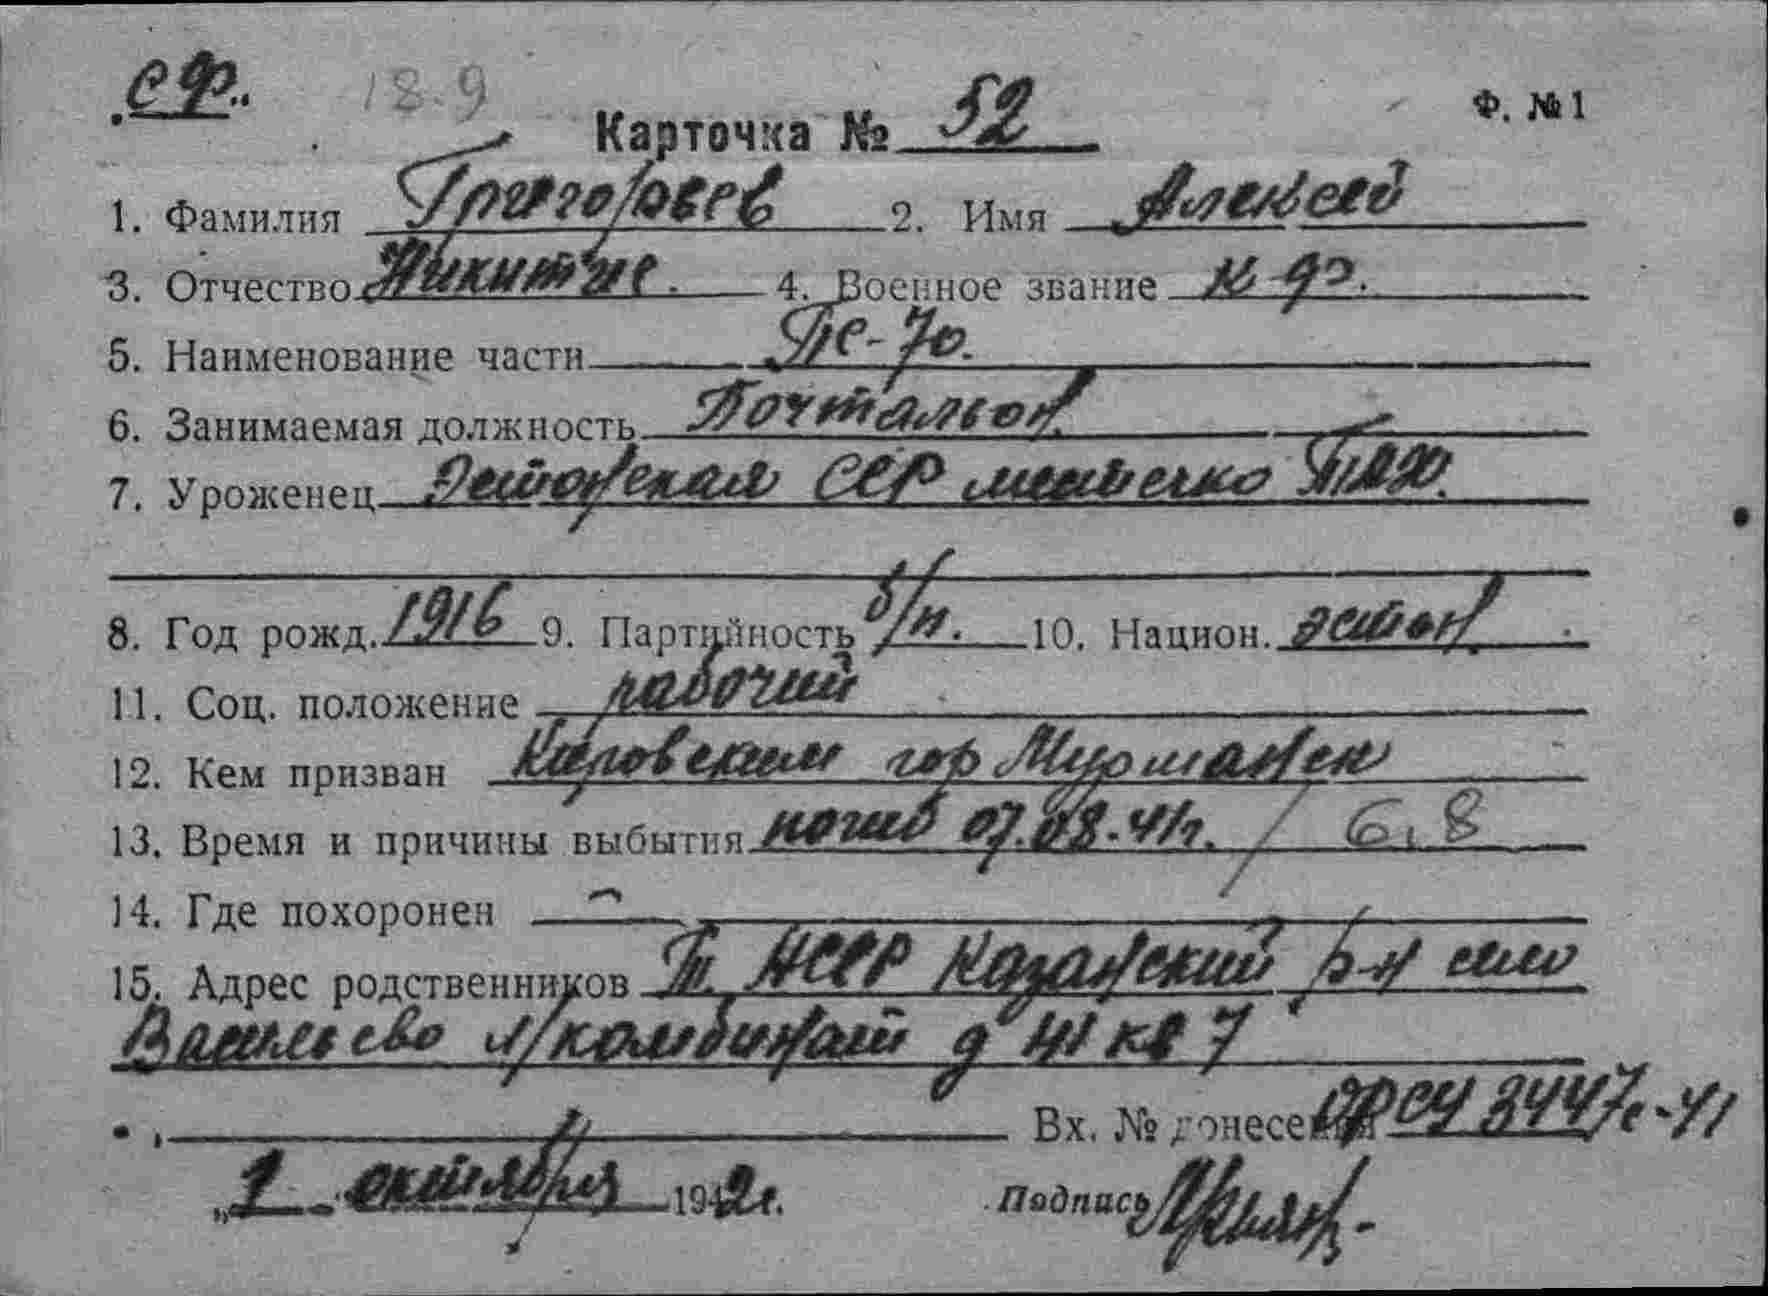 С Ф. 18.9
Ф. №1
Карточка № 52
1. Фамилия Григорьев 2. Имя Алексей
3. Отчество Никитич. 4. Военное звание к-ф.
5. Наименование части
6. Занимаемая должность Почтальон
7. Уроженец Эстонская ССР местечко
8. Год рожд. 1916 9. Партийность б/п. 10. Национ. эстон
11. Соц. положение рабочий
12. Кем призван Кировским гор Мурманск
13. Время и причины выбытия погиб 07.08.41г. / 6.8
14. Где похоронен —
15. Адрес родственников Т. АССР Казанский р-н село
Васильево л/комбинат д 41 кв 7
Вх. № донесения ОРСУ 3447с-41
„1 октября 1942г. Подпись